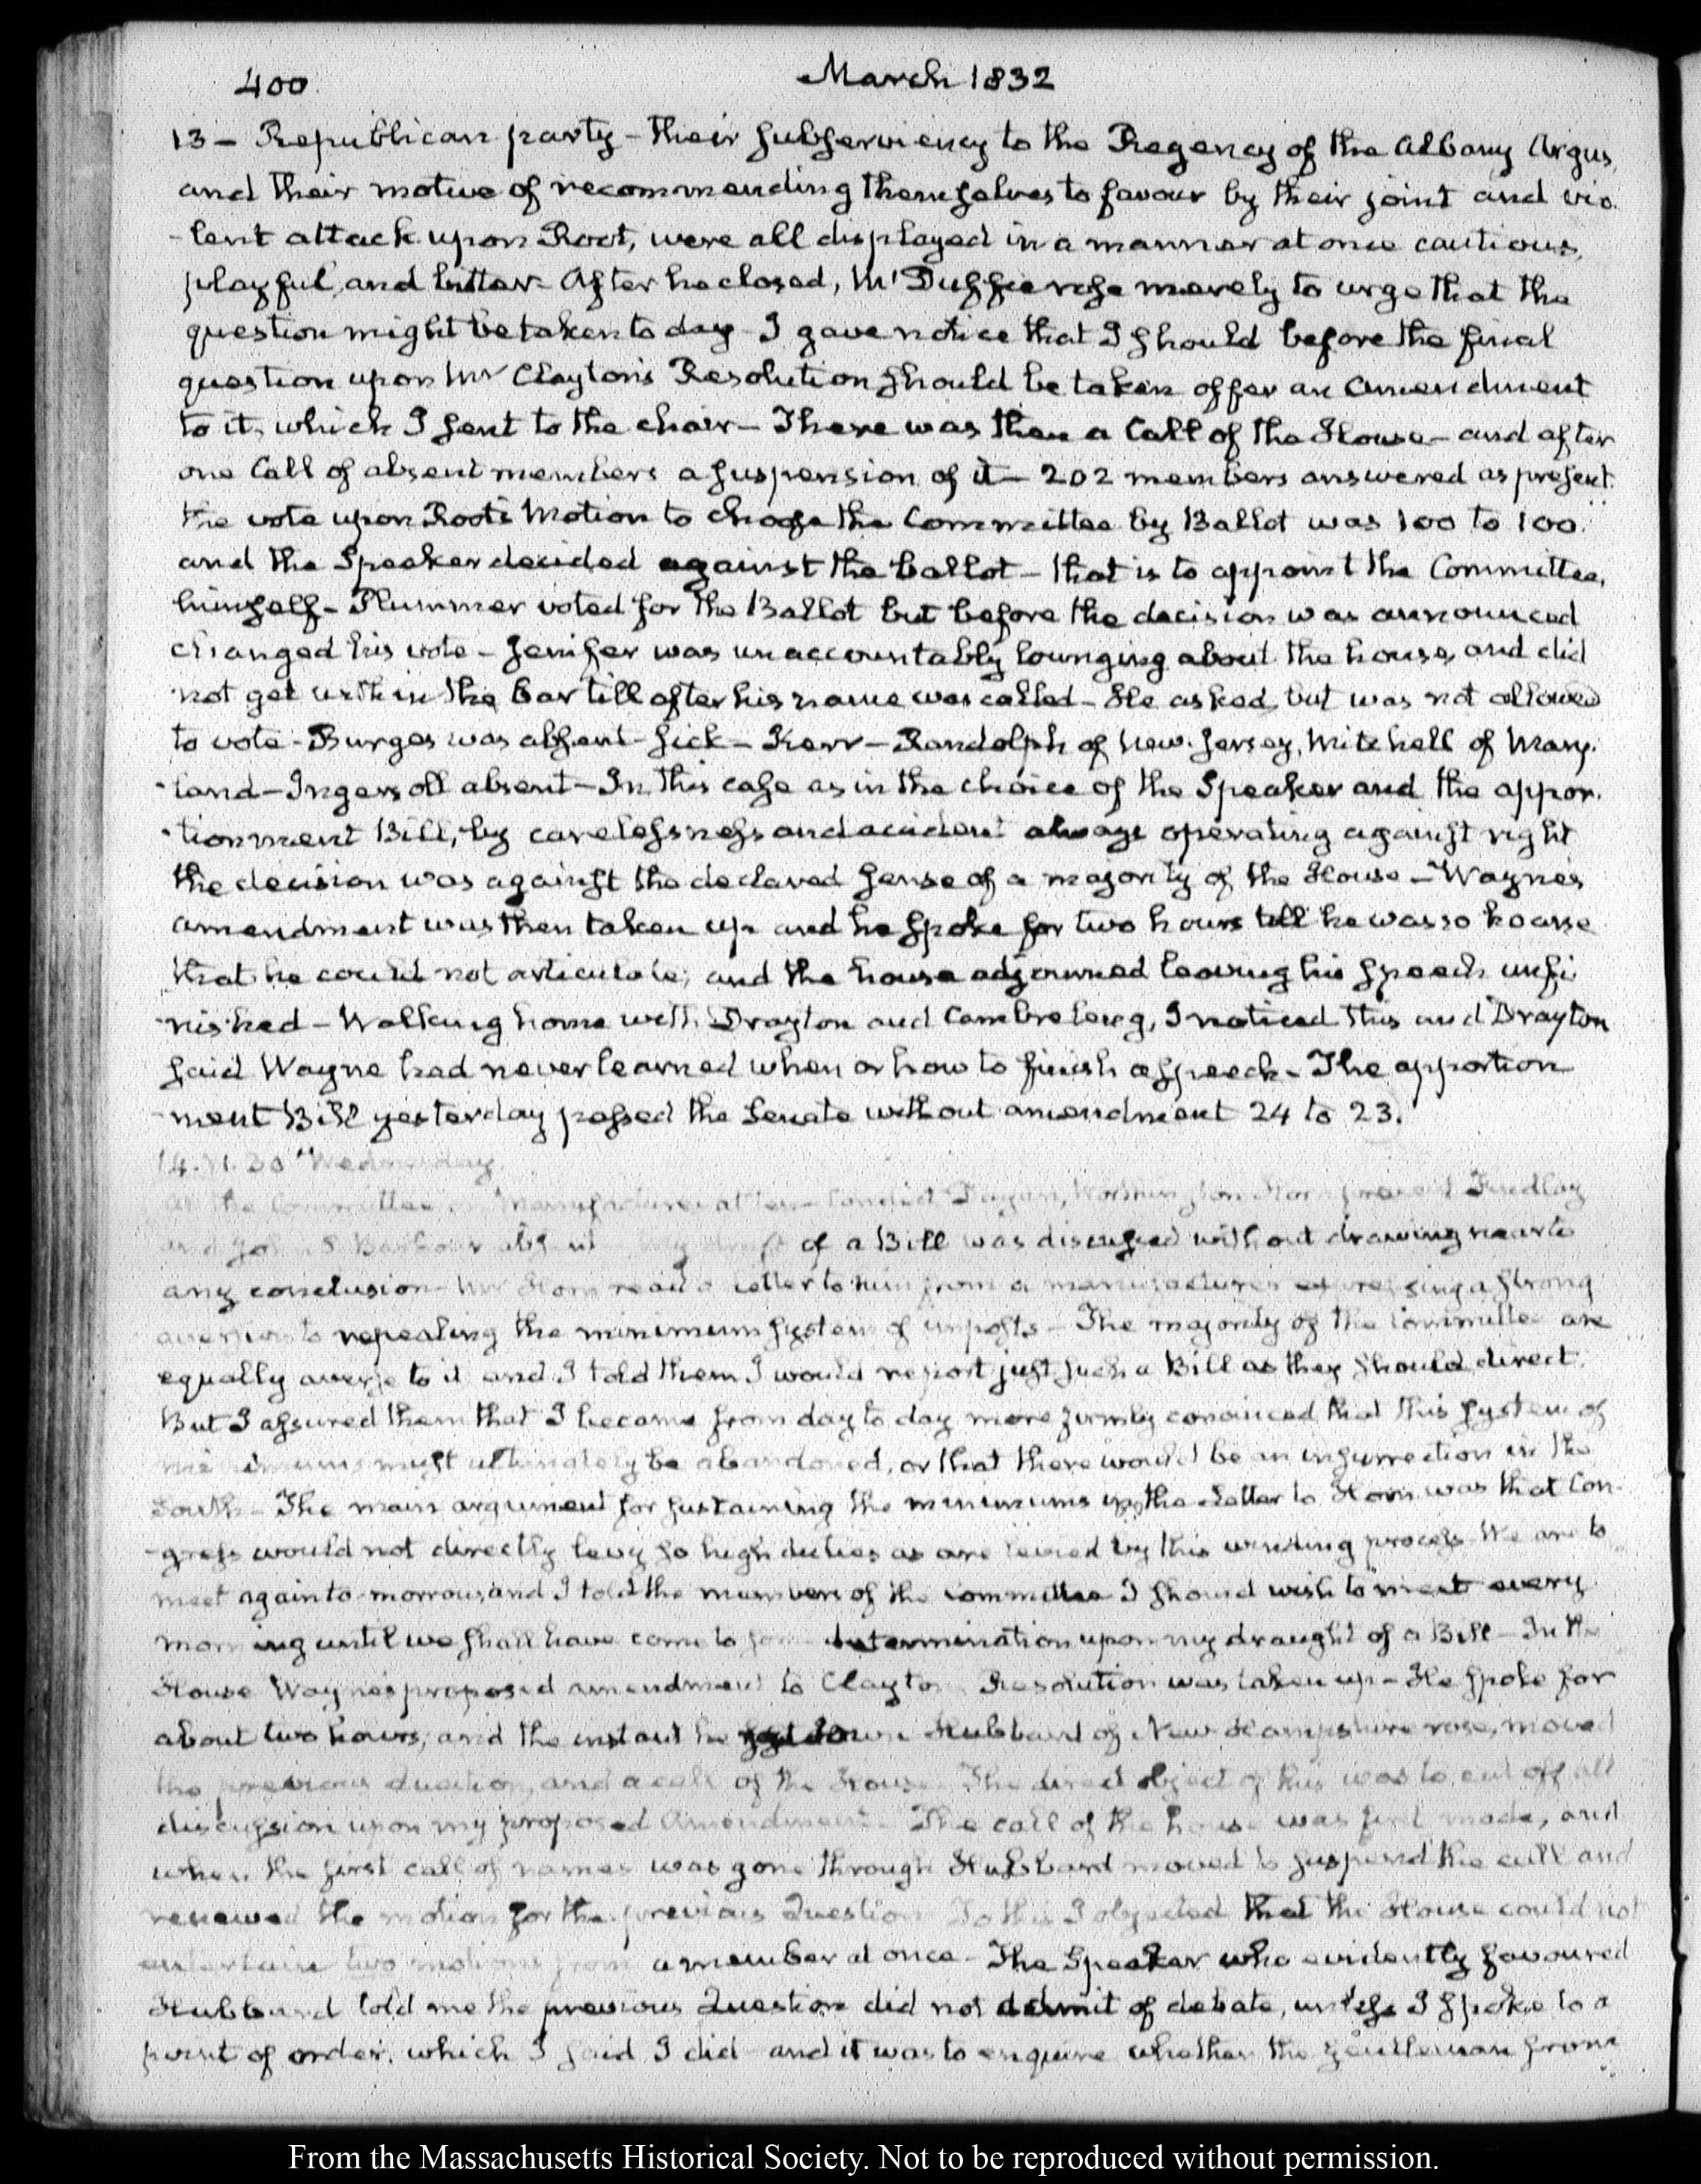 400
March 1832
13 — Republican party — their subserviency to the Regency of the Albany Argus,
and their motive of recommending themselves to favour by their joint and vio-
-lent attack upon Root, were all displayed in a manner at once cautious,
playful, and bitter. After he closed, Mr Duffie rose merely to urge that the
question might be taken to day — I gave notice that I should before the final
question upon Mr Clayton's Resolution should be taken offer an Amendment
to it, which I sent to the chair — There was then a Call of the House — and after
one Call of absent members a suspension of it — 202 members answered as present.
The vote upon Root's Motion to choose the Committee by Ballot was 100 to 100.
and the Speaker decided against the ballot — that is to appoint the Committee,
himself — Plummer voted for the Ballot but before the decision was announced
changed his vote — Jenifer was unaccountably lounging about the house, and did
not get within the bar till after his name was called — He asked, but was not allowed
to vote — Burges was absent — sick — Kerr — Randolph of New-Jersey, Mitchell of Mary-
-land — Ingersoll absent — In this case as in the choice of the Speaker and the appor-
-tionment Bill, by carelessness and accident always operating against right
the decision was against the declared sense of a majority of the House — Wayne's
amendment was then taken up and he spoke for two hours till he was so hoarse
that he could not articulate; and the house adjourned leaving his speech unfi-
-nished — Walking home with Drayton and Cambreleng, I noticed this and Drayton
said Wayne had never learned when or how to finish a speech — The apportion
-ment Bill yesterday passed the Senate without amendment 24 to 23.
14. VI. 30 Wednesday.
At the Committee on Manufactures at ten — Condict, Dayan, Worthington, Horn present Findlay
and John S. Barbour absent — My draft of a Bill was discussed without drawing near to
any conclusion — Mr Horn read a letter to him from a manufacturer expressing a strong
aversion to repealing the minimum system of imposts — The majority of the Committee are
equally averse to it and I told them I would report just such a Bill as they should direct.
But I assured them that I became from day to day more firmly convinced that this system of
minimums must ultimately be abandoned, or that there would be an insurrection in the
South — The main argument for sustaining the minimums in the Letter to Horn was that Con-
-gress would not directly levy so high duties as are levied by this winding process. We are to
meet again to-morrow, and I told the members of the committee I should wish to meet every
morning until we shall have come to some determination upon my draught of a Bill — In the
House Wayne's proposed amendment to Clayton's Resolution was taken up — He spoke for
about two hours; and the instant he sat down Hubbard of New-Hampshire rose, moved
the previous question, and a call of the House. The direct object of this was to cut off all
discussion upon my proposed Amendment. The call of the house was first made, and
when the first call of names was gone through Hubbard moved to suspend the call and
renewed the motion for the previous Question. To this I objected that the House could not
entertain two motions from a member at once — The Speaker who evidently favoured
Hubbard told me the previous Question did not admit of debate, unless I spoke to a
point of order. which I said I did — and it was to enquire whether the gentleman from
From the Massachusetts Historical Society. Not to be reproduced without permission.